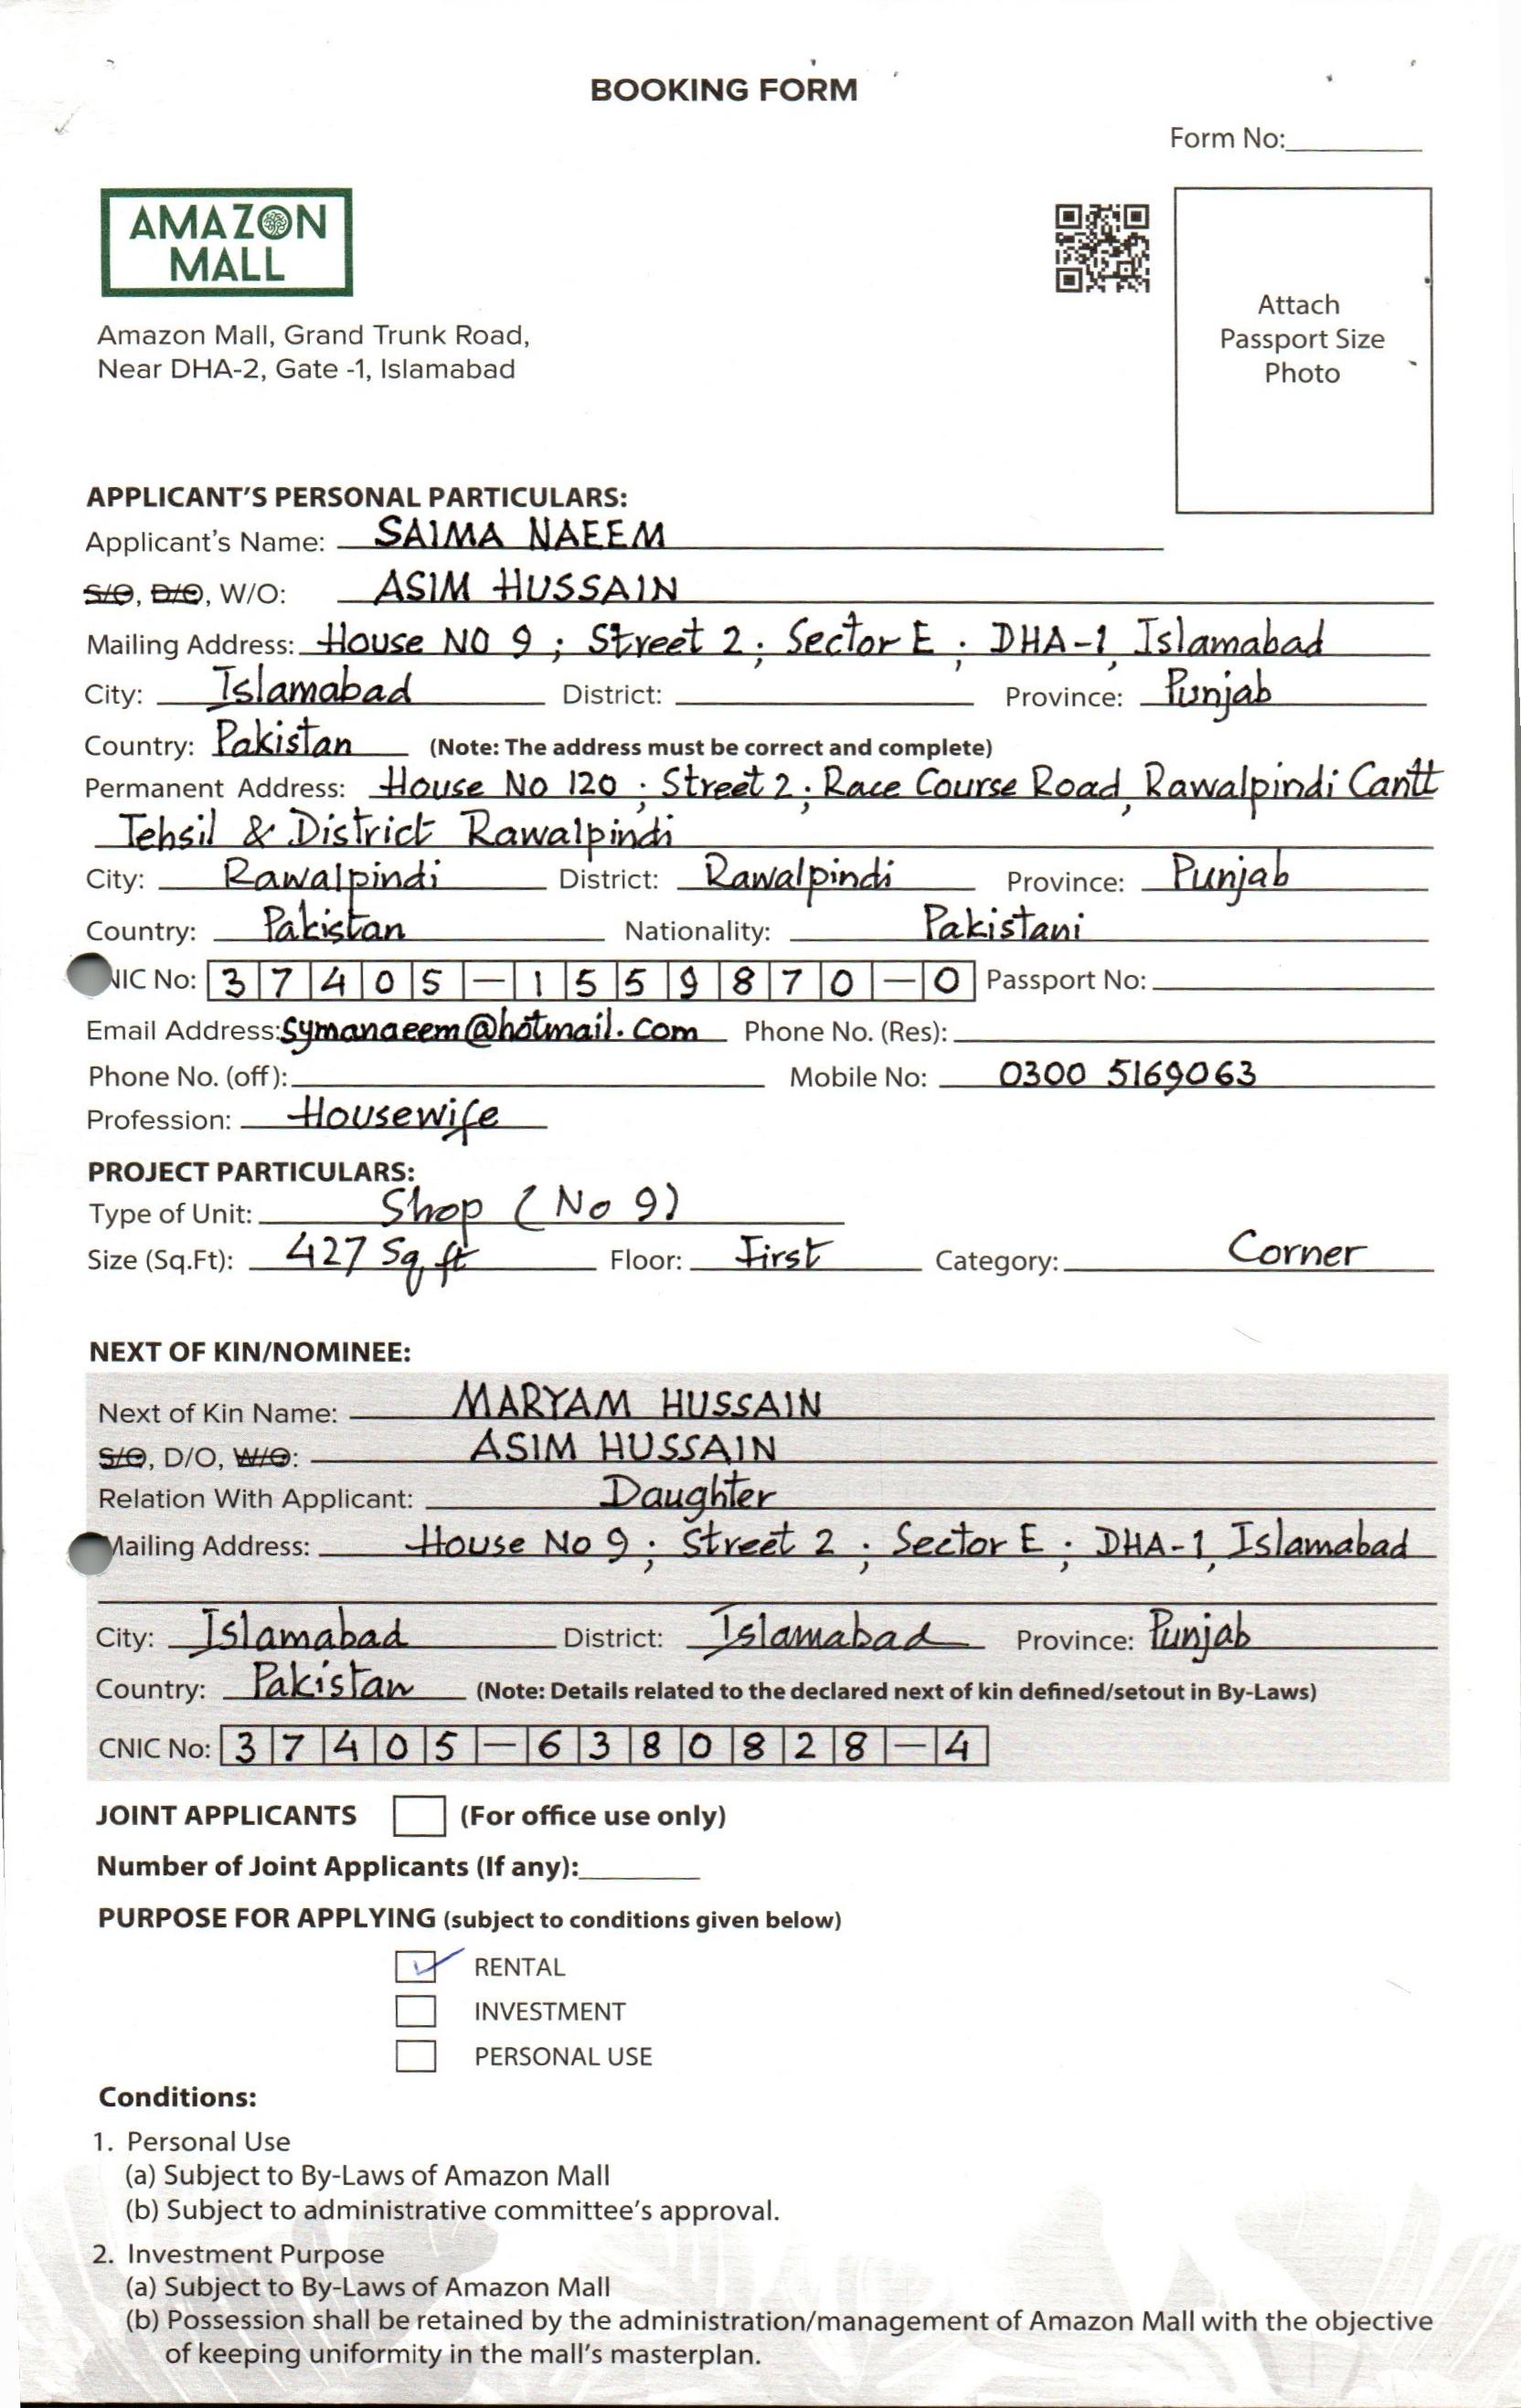 BOOKING FORM
Form No:
AMAZON
MALL
Amazon Mall, Grand Trunk Road,
Near DHA-2, Gate -1, Islamabad
Attach
Passport Size
Photo
APPLICANT'S PERSONAL PARTICULARS:
Applicant's Name: SAIMA NAEEM
S/O, D/O, W/O: ASIM HUSSAIN
Mailing Address: House NO 9 ; Street 2 ; Sector E ; DHA-1, Islamabad
City: Islamabad District: Province: Punjab
Country: Pakistan (Note: The address must be correct and complete)
Permanent Address: House No 120 ; Street 2 ; Race Course Road, Rawalpindi Cantt
Tehsil & District Rawalpindi
City: Rawalpindi District: Rawalpindi Province: Punjab
Country: Pakistan Nationality: Pakistani
NIC No: 37405-1559870-0 Passport No:
Email Address: symanaeem@hotmail.com Phone No. (Res):
Phone No. (off): Mobile No: 0300 5169063
Profession: Housewife
PROJECT PARTICULARS:
Type of Unit: Shop (No 9)
Size (Sq.Ft): 427 Sq ft Floor: First Category: Corner
NEXT OF KIN/NOMINEE:
Next of Kin Name: MARYAM HUSSAIN
S/O, D/O, W/O: ASIM HUSSAIN
Relation With Applicant: Daughter
Mailing Address: House No 9 ; Street 2 ; Sector E ; DHA-1, Islamabad
City: Islamabad District: Islamabad Province: Punjab
Country: Pakistan (Note: Details related to the declared next of kin defined/setout in By-Laws)
CNIC No: 37405-6380828-4
JOINT APPLICANTS (For office use only)
Number of Joint Applicants (If any):
PURPOSE FOR APPLYING (subject to conditions given below)
RENTAL
INVESTMENT
PERSONAL USE
Conditions:
1. Personal Use
(a) Subject to By-Laws of Amazon Mall
(b) Subject to administrative committee's approval.
2. Investment Purpose
(a) Subject to By-Laws of Amazon Mall
(b) Possession shall be retained by the administration/management of Amazon Mall with the objective
of keeping uniformity in the mall's masterplan.